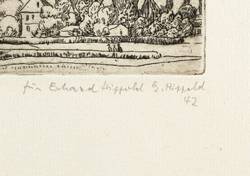 für Erhard Hippold E. Hippold
42